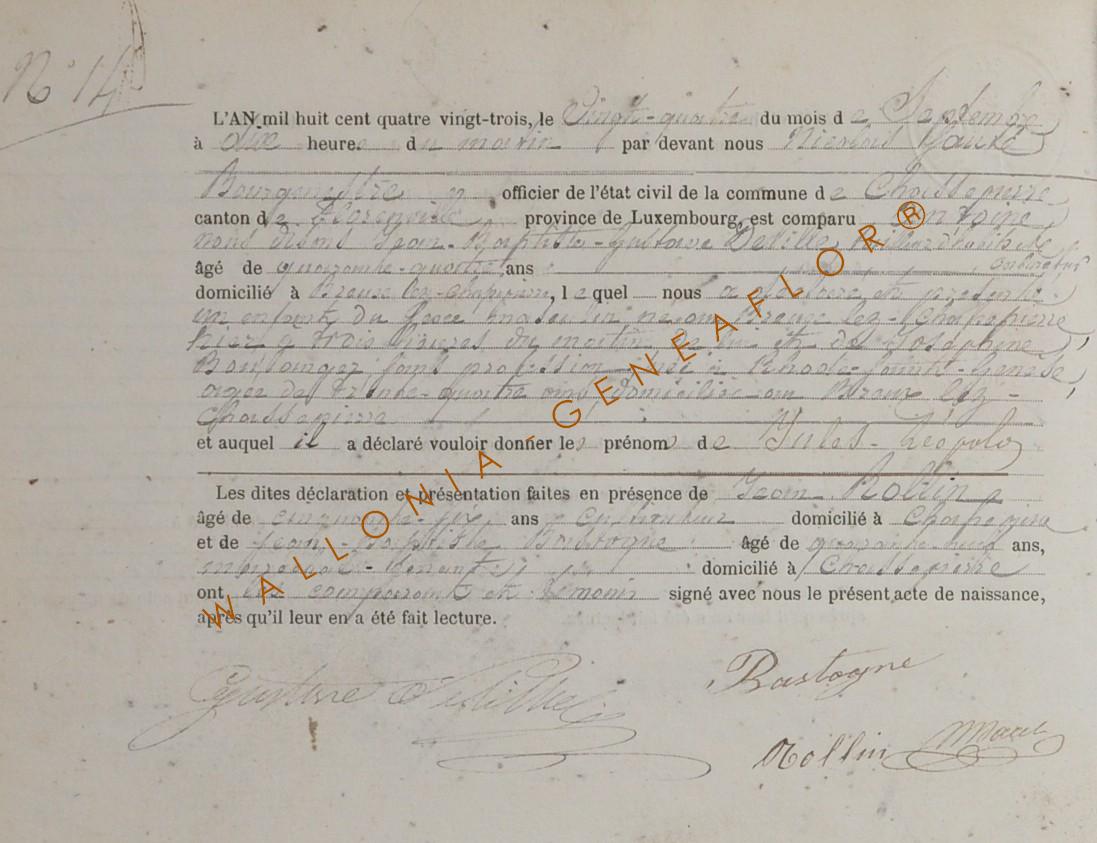 N° 14
L'AN mil huit cent quatre vingt-trois, le Vingt-quatre du mois de Septembre
à dix heures du matin par devant nous Nicolas
Bourgmestre officier de l'état civil de la commune de Chassepierre
canton de Florenville, province de Luxembourg, est comparu Antoine
Jean-Baptiste-Gustave Deville
âgé de quarante-quatre ans
domicilié à lequel nous a déclaré et présenté
un enfant du sexe masculin né au Breux lez-Chassepierre
hier à trois heures du matin de lui et de Joséphine
Boulanger sans profession née à Rhode-Sainte-Genèse,
âgée de trente-quatre ans, domiciliée au Breux lez-
Chassepierre
et auquel il a déclaré vouloir donner les prénoms de Jules-Léopold
Les dites déclaration et présentation faites en présence de Jean Rollin
âgé de cinquante-six ans domicilié à Chassepierre
et de Jean-Baptiste Bastogne âgé de ans,
domicilié à Chassepierre
ont les comparant et témoins signé avec nous le présent acte de naissance,
après qu'il leur en a été fait lecture.
Gustave Deville
Bastogne
Rollin
WALLONIA-GENEAFLOR®